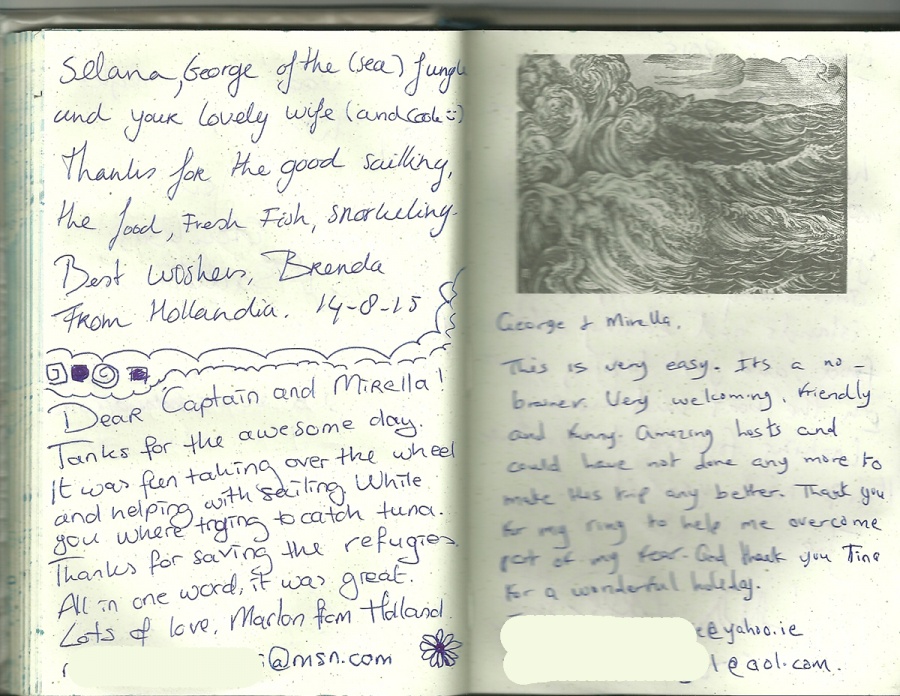 Selana, George of the (sea) Jungle
and your lovely wife (and cook :)
Thanks for the good sailling,
the food, Fresh Fish, snorkeling.
Best woshers, Brenda
From Hollandia. 14-8-15
Dear Captain and Mirella!
Tanks for the awesome day.
It was fun taking over the wheel
and helping with sailing While
you where trying to catch tuna.
Thanks for saving the refugies.
All in one word, it was great.
Lots of love, Marlon from Holland
i@msn.com
George & Mirella,
This is very easy. Its a no-
brainer. Very welcoming, friendly
and funny. Amazing hosts and
could have not done any more to
make this trip any better. Thank you
for my ring to help me overcome
part of my fear. And thank you Tina
for a wonderful holiday.
e@yahoo.ie
l@aol.com.